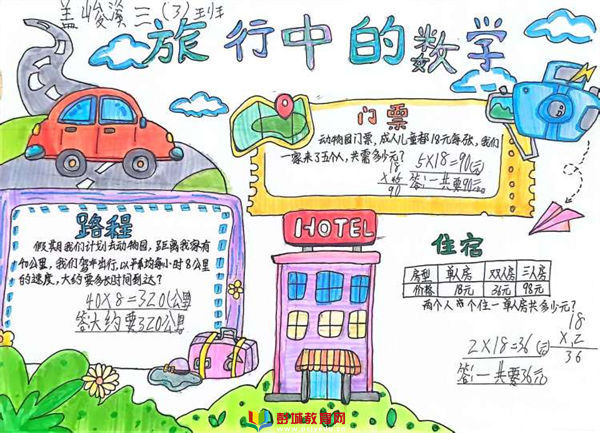 盖峻溪 三（3）班
旅行中的数学
门票
动物园门票，成人儿童都18元每张，我们
一家来了五个人，共需多少元？
5×18=90(元)
18
× 5
90
答:一共要90元
路程
假期我们计划去动物园，距离我家有
40公里，我们驾车出行，以平均每小时8公里
的速度，大约要多长时间到达？
40×8=320(公里)
答大约要320公里
HOTEL
住宿
房型 单人房 双人房 三人房
价格 18元 36元 98元
两个人 个住一单人房共多少元？
2×18=36(元)
18
× 2
36
答:一共要36元
彭城教育网